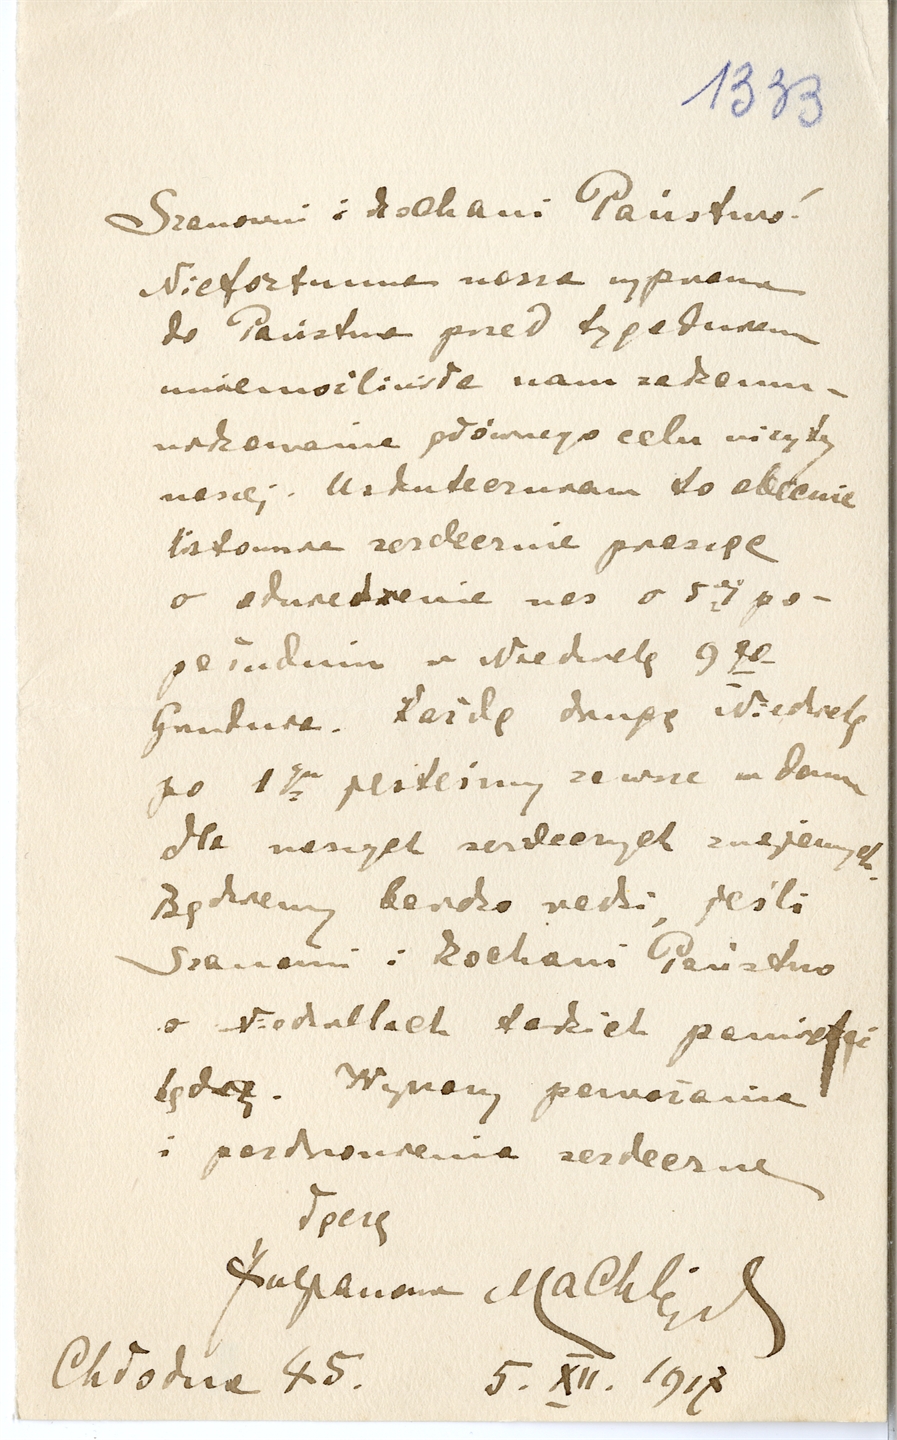 1333
Szanowni i kochani Państwo!
Niefortunna nasza wyprawa
do Państwa przed tygodniem
uniemożliwiła nam zakomu-
nikowanie głównego celu wizyty
naszej. Uskuteczniam to obecnie
listownie serdecznie prosząc
o odwiedzenie nas o 5ej po-
południu w Niedzielę 9go
Grudnia. Każdą drugą Niedzielę
po 1ym jesteśmy zawsze w domu
dla naszych serdecznych znajomych.
Będziemy bardzo radzi, jeśli
Szanowni i kochani Państwo
o Niedzielach takich pamiętać
będą. Wyrazy poważania
i pozdrowienia serdeczne
łączą
Julianowie Machlejd
Chłodna 45. 5. XII. 1917